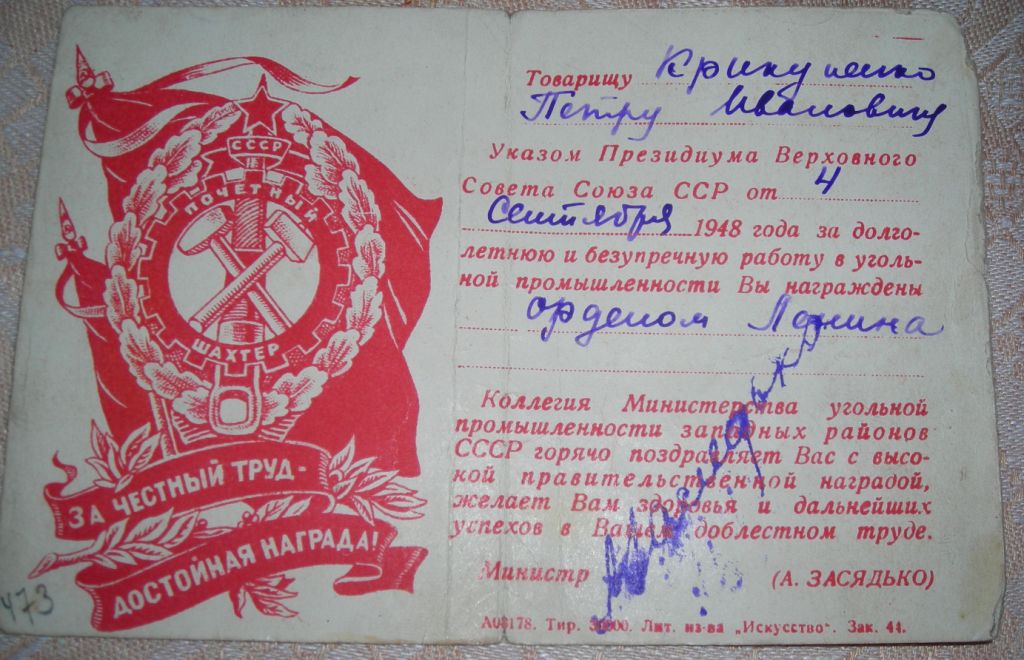 СССР
ПОЧЕТНЫЙ
ШАХТЕР
ЗА ЧЕСТНЫЙ ТРУД -
ДОСТОЙНАЯ НАГРАДА!
473
Товарищу
Петру Ивановичу
Указом Президиума Верховного
Совета Союза ССР от 4
Сентября 1948 года за долго-
летнюю и безупречную работу в уголь-
ной промышленности Вы награждены
орденом Ленина
Коллегия Министерства угольной
промышленности западных районов
СССР горячо поздравляет Вас с высо-
кой правительственной наградой,
желает Вам здоровья и дальнейших
успехов в Вашем доблестном труде.
Министр (А. ЗАСЯДЬКО)
Тир. Лит. из-ва „Искусство". Зак. 44.